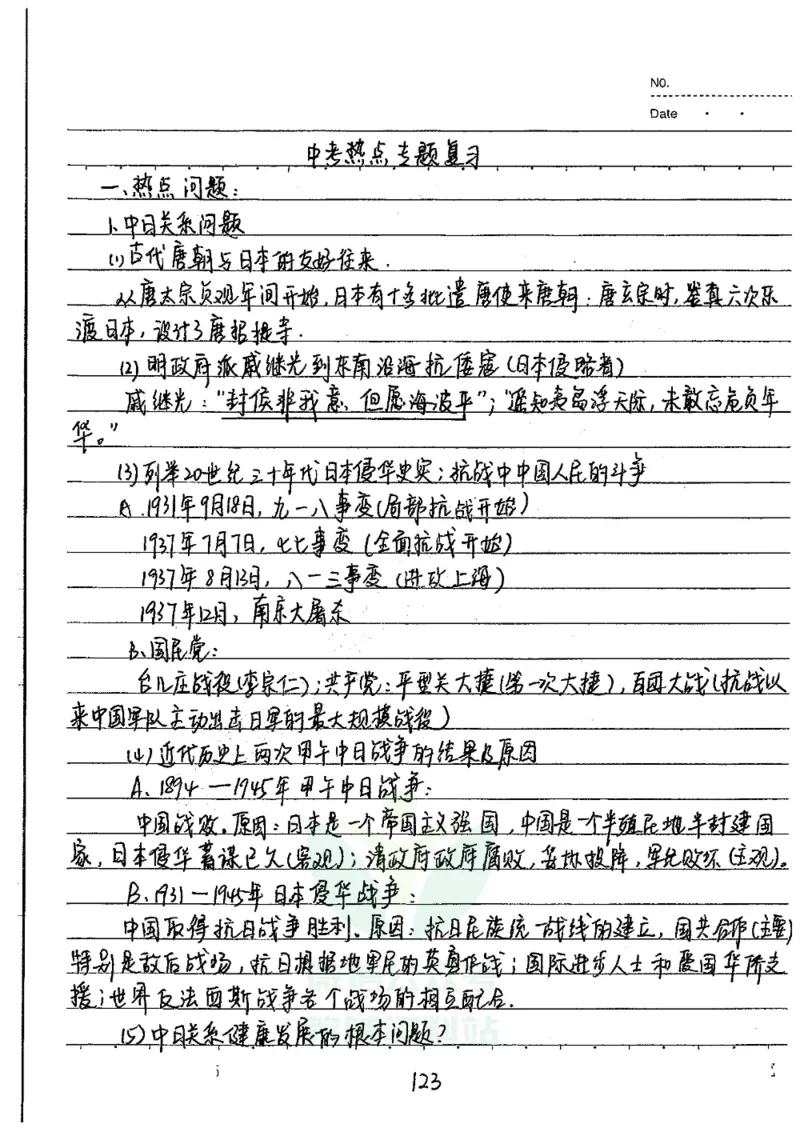 NO.
Date
中考热点专题复习
一、热点问题：
1、中日关系问题
(1)古代唐朝与日本的友好往来．
从唐太宗贞观年间开始，日本有十多批遣唐使来唐朝．唐玄宗时，鉴真六次东
渡日本，设计了唐招提寺．
(2) 明政府派戚继光到东南沿海抗倭寇（日本侵略者）
戚继光："封侯非我意，但愿海波平"；"遥知夷岛浮天际，未敢忘危负年
华。"
(3)列举20世纪三十年代日本侵华史实；抗战中中国人民的斗争
A .1931年9月18日，九一八事变（局部抗战开始）
1937年7月7日，七七事变（全面抗战开始）
1937年8月13日，八一三事变（进攻上海）
1937年12月，南京大屠杀
B、国民党：
台儿庄战役（李宗仁）；共产党：平型关大捷（第一次大捷），百团大战（抗战以
来中国军队主动出击日军的最大规模战役）
(4)近代历史上两次甲午中日战争的结果及原因
A、1894—1945年甲午中日战争：
中国战败。原因：日本是一个帝国主义强国，中国是一个半殖民地半封建国
家，日本侵华蓄谋已久（客观）；清政府政府腐败，妥协投降，军纪败坏（主观）。
B、1931—1945年日本侵华战争：
中国取得抗日战争胜利。原因：抗日民族统一战线的建立，国共合作（主要）
特别是敌后战场，抗日根据地军民的英勇作战；国际进步人士和爱国华侨支
援；世界反法西斯战争各个战场的相互配合．
(5)中日关系健康发展的根本问题？
123